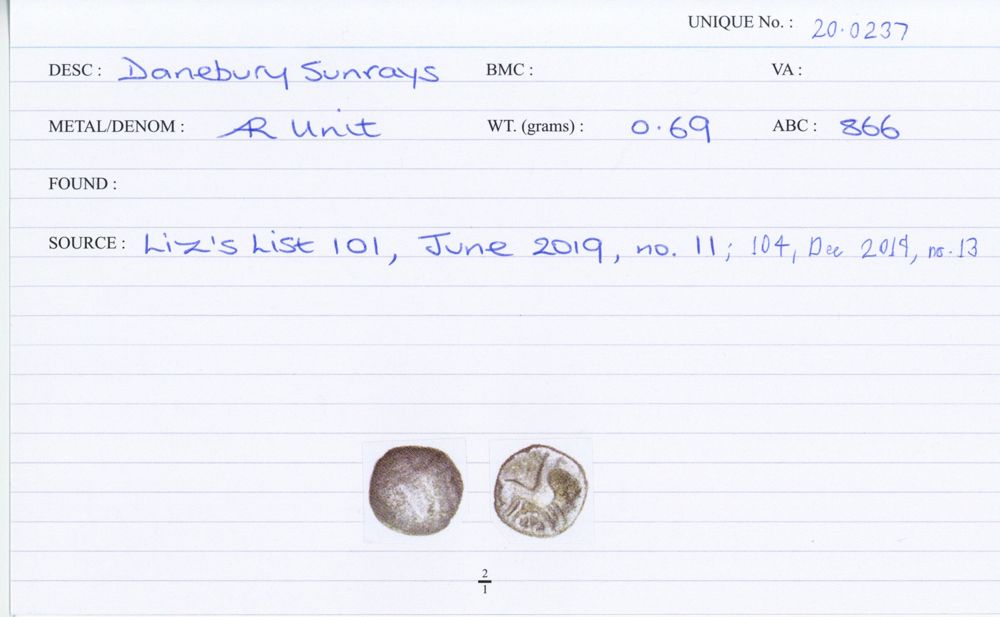 UNIQUE No. : 20.0237
DESC : Danebury Sunrays BMC : VA :
METAL/DENOM : AR Unit WT. (grams) : 0.69 ABC : 866
FOUND :
SOURCE : Liz's List 101, June 2019, no. 11; 104, Dec 2019, no. 13
2
1